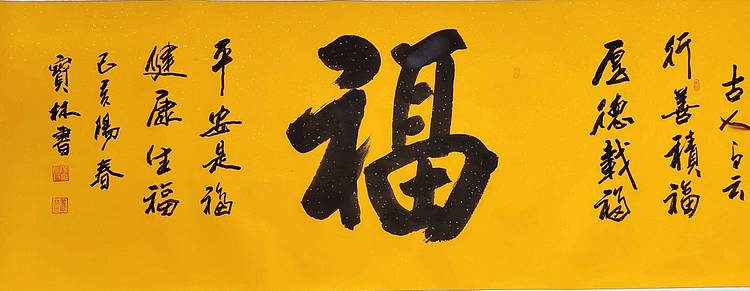 古人云
行善積福
厚德載福
福
平安是福
健康生福
己亥陽春
寶林書